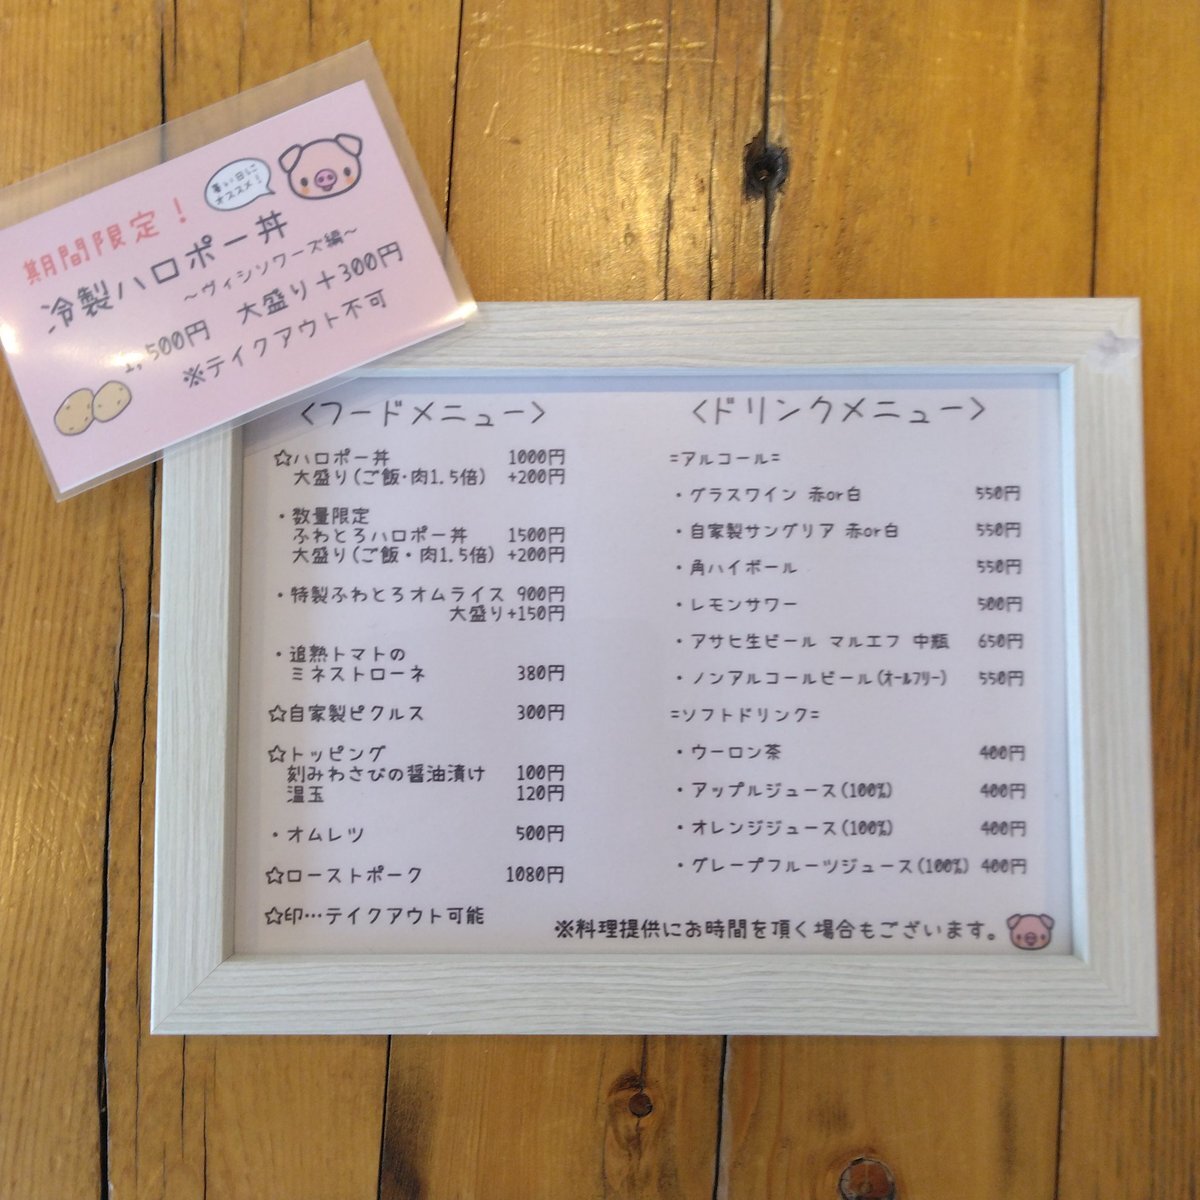 暑い日に
オススメ！
期間限定！
冷製ハロポー丼
～ヴィシソワーズ編～
1,500円 大盛り＋300円
※テイクアウト不可
<フードメニュー>
☆ハロポー丼 1000円
大盛り(ご飯・肉1.5倍) +200円
・数量限定
ふわとろハロポー丼 1500円
大盛り(ご飯・肉1.5倍) +200円
・特製ふわとろオムライス 900円
大盛り+150円
・追熟トマトの
ミネストローネ 380円
☆自家製ピクルス 300円
☆トッピング
刻みわさびの醤油漬け 100円
温玉 120円
・オムレツ 500円
☆ローストポーク 1080円
☆印…テイクアウト可能
<ドリンクメニュー>
=アルコール=
・グラスワイン 赤or白 550円
・自家製サングリア 赤or白 550円
・角ハイボール 550円
・レモンサワー 500円
・アサヒ生ビール マルエフ 中瓶 650円
・ノンアルコールビール(ｵｰﾙﾌﾘｰ) 550円
=ソフトドリンク=
・ウーロン茶 400円
・アップルジュース(100%) 400円
・オレンジジュース(100%) 400円
・グレープフルーツジュース(100%) 400円
※料理提供にお時間を頂く場合もございます。